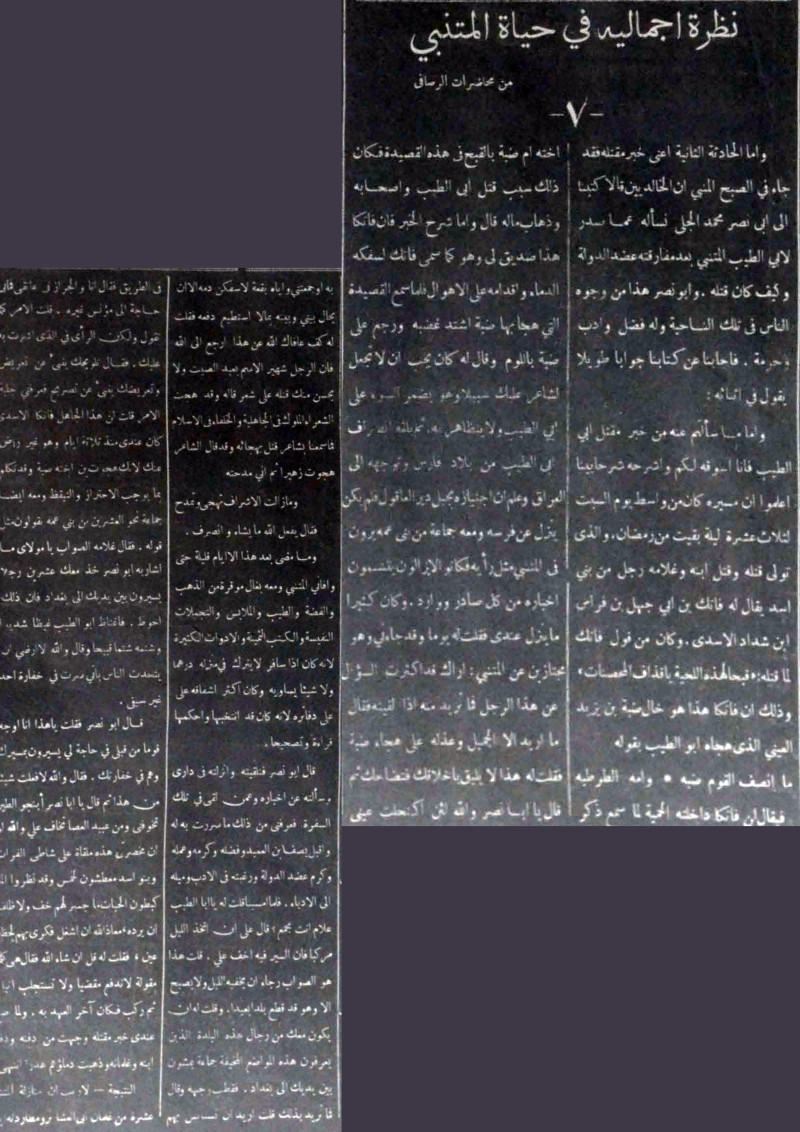 نظرة اجماليه في حياة المتنبي
من محاضرات الرصافى
-٧-
واما الحادثة الثانية اعنى خبر مقتله فقد
جاء في الصبح المنبي ان الخالديين قالا كتبنا
الى ابى نصر محمد الجلى نسأله عما صدر
لابي الطيب المتنبي بعد مفارقته عضد الدولة
وكيف كان قتله . وابو نصر هذا من وجوه
الناس في تلك الناحية وله فضل وادب
وحرمة . فاجابنا عن كتابنا جوابا طويلا
يقول في اثنائه :
واما ما سألتم عنه من خبر مقتل ابي
الطيب فانا اسوقه لكم واشرحه شرحا بينا
اعلموا ان مسيره كان من واسط يوم السبت
لثلاث عشرة ليلة بقيت من رمضان، والذى
تولى قتله وقتل ابنه وغلامه رجل من بني
اسد يقال له فاتك بن ابي جهل بن فراس
ابن شداد الاسدى . وكان من قول فاتك
لما قتله: «قبحا لهذه اللحية ياقذاف المحصنات»
وذلك ان فاتكا هذا هو خال ضبة بن يزيد
العيني الذى هجاه ابو الطيب بقوله
ما انصف القوم ضبه * وامه الطرطبه
فيقال ان فاتكا داخلته الحمية لما سمع ذكر
اخته ام ضبة بالقبيح في هذه القصيدة فكان
ذلك سبب قتل ابى الطيب واصحابه
وذهاب ماله قال واما شرح الخبر فان فاتكا
هذا صديق لى وهو كما سمى فاتك لسفكه
الدماء واقدامه على الاهوال فلما سمع القصيدة
التي هجا بها ضبة اشتد غضبه ورجع على
ضبة باللوم وقال له كان يجب ان لا تجعل
لشاعر عليك سبيلا وهو يضمر السوء على
ابي الطيب ولا يتظاهر به. ثم بلغه انصراف
ابى الطيب من بلاد فارس وتوجهه الى
العراق وعلم ان اجتيازه بجبل دير العاقول فلم يكن
ينزل عن فرسه ومعه جماعة من بنى عمه يرون
فى المتنبي مثل رأيه فكانوا لايزالون يتنسمون
اخباره من كل صادر ووارد . وكان كثيرا
ما ينزل عندى فقلت له يوما وقد جاءني وهو
مجتاز عن المتنبي: اراك قد اكثرت السؤال
عن هذا الرجل فما تريد منه اذا لقيته فقال
ما اريد الا الجميل وعذله على هجاء ضبة
فقلت له هذا لا يليق باخلاقك فتضاحك ثم
قال يا ابا نصر والله لئن اكتحلت عيني
به او جمعتني واياه بقعة لاسفكن دمه الا ان
يحال بيني وبينه بمالا استطيع دفعه فقلت
له كف عافاك الله عن هذا ارجع الى الله
فان الرجل شهير الاسم بعيد الصيت ولا
يحسن منك قتله على شعر قاله وقد هجت
الشعراء الملوك فى الجاهلية والخلفاء فى الاسلام
فما سمعنا بشاعر قتل بهجائه وقد قال الشاعر
هجوت زهيرا ثم اني مدحته
ومازالت الاشراف تهجى وتمدح
فقال يفعل الله ما يشاء و انصرف .
وما مضى بعد هذا الا ايام قليلة حتى
وافاني المتنبي ومعه بغال موقرة من الذهب
والفضة والطيب والملابس والتجملات
النفيسة والكتب الثمينة والادوات الكثيرة
لانه كان اذا سافر لا يترك في منزله درهما
ولا شيئا يساويه وكان أكثر اشفاقه على
دفاتره لانه كان قد انتخبها واحكمها
قراءة وتصحيحا .
قال ابو نصر فتلقيته وانزلته فى دارى
وسألته عن اخباره وعمن لقي فى تلك
السفرة فعرفنى من ذلك ما سررت به له
واقبل يصف ابن العميد وفضله وكرمه وعلمه
وكرم عضد الدولة ورغبته فى الادب وميله
الى الادباء . فلما امسينا قلت له يا ابا الطيب
علام انت مجمع؟ قال على ان اتخذ الليل
مركبا فان السير فيه اخف علي . قلت هذا
هو الصواب رجاء ان يخفيه الليل ولا يصبح
الا وهو قد قطع بلدا بعيدا. وقلت له ان
يكون معك من رجال هذه البلدة الذين
يعرفون هذه المواضع المخيفة جماعة يمشون
بين يديك الى بغداد . فقطب وجهه وقال
فما تريد بذلك قلت اريد ان تستأنس بهم
فى الطريق فقال انا والجراز فى عاتقي فما بي
حاجة الى مؤنس غيره . قلت الامر كما
تقول ولكن الرأى فى الذى اشرت به
عليك . فقال تلويحك ينبى عن تعريض
وتعريضك ينبى عن تصريح فعرفني جلية
الامر قلت ان هذا الجاهل فاتكا الاسدى
كان عندى منذ ثلاثة ايام وهو غير راض
عنك لانك هجوت ابن اخته ضبة وقد تكلم
بما يوجب الاحتراز والتيقظ ومعه ايضا
جماعة نحو العشرين من بنى عمه يقولون مثل
قوله . فقال غلامه الصواب يا مولاى ما
اشار به ابو نصر خذ معك عشرين رجلا
يسيرون بين يديك الى بغداد فان ذلك
احوط . فاغتاظ ابو الطيب غيظا شديدا
وشتمه شتما قبيحا وقال والله لا ارضى ان
يتحدث الناس بأني سرت في خفارة احد
غير سيفي .
قال ابو نصر فقلت ياهذا انا اوجه
قوما من قبلي في حاجة لي يسيرون بمسيرك
وهم في خفارتك . فقال والله لا فعلت شيئا
من هذا ثم قال يا ابا نصر أبنجو الطير
تخوفني ومن عبيد العصا تخاف علي والله لو
ان مخصرتي هذه ملقاة على شاطى الفرات
وبنو اسد معطشون لخمس وقد نظروا الماء
كبطون الحيات ما جسر لهم خف ولا ظلف
ان يرده، معاذ الله ان اشغل فكرى بهم لحظة
عين ، فقلت له قل ان شاء الله فقال هي كلمة
مقولة لا تدفع مقضيا ولا تستجلب آتيا
ثم ركب فكان آخر العهد به . ولما صح
عندى خبر مقتله وجهت من دفنه ودفن
ابنه وغلمانه وذهبت دماؤهم هدرا. انتهى
النتيجة — لاريب ان منازلة
عشرة من غلمان ابى العشائر ومطاردته